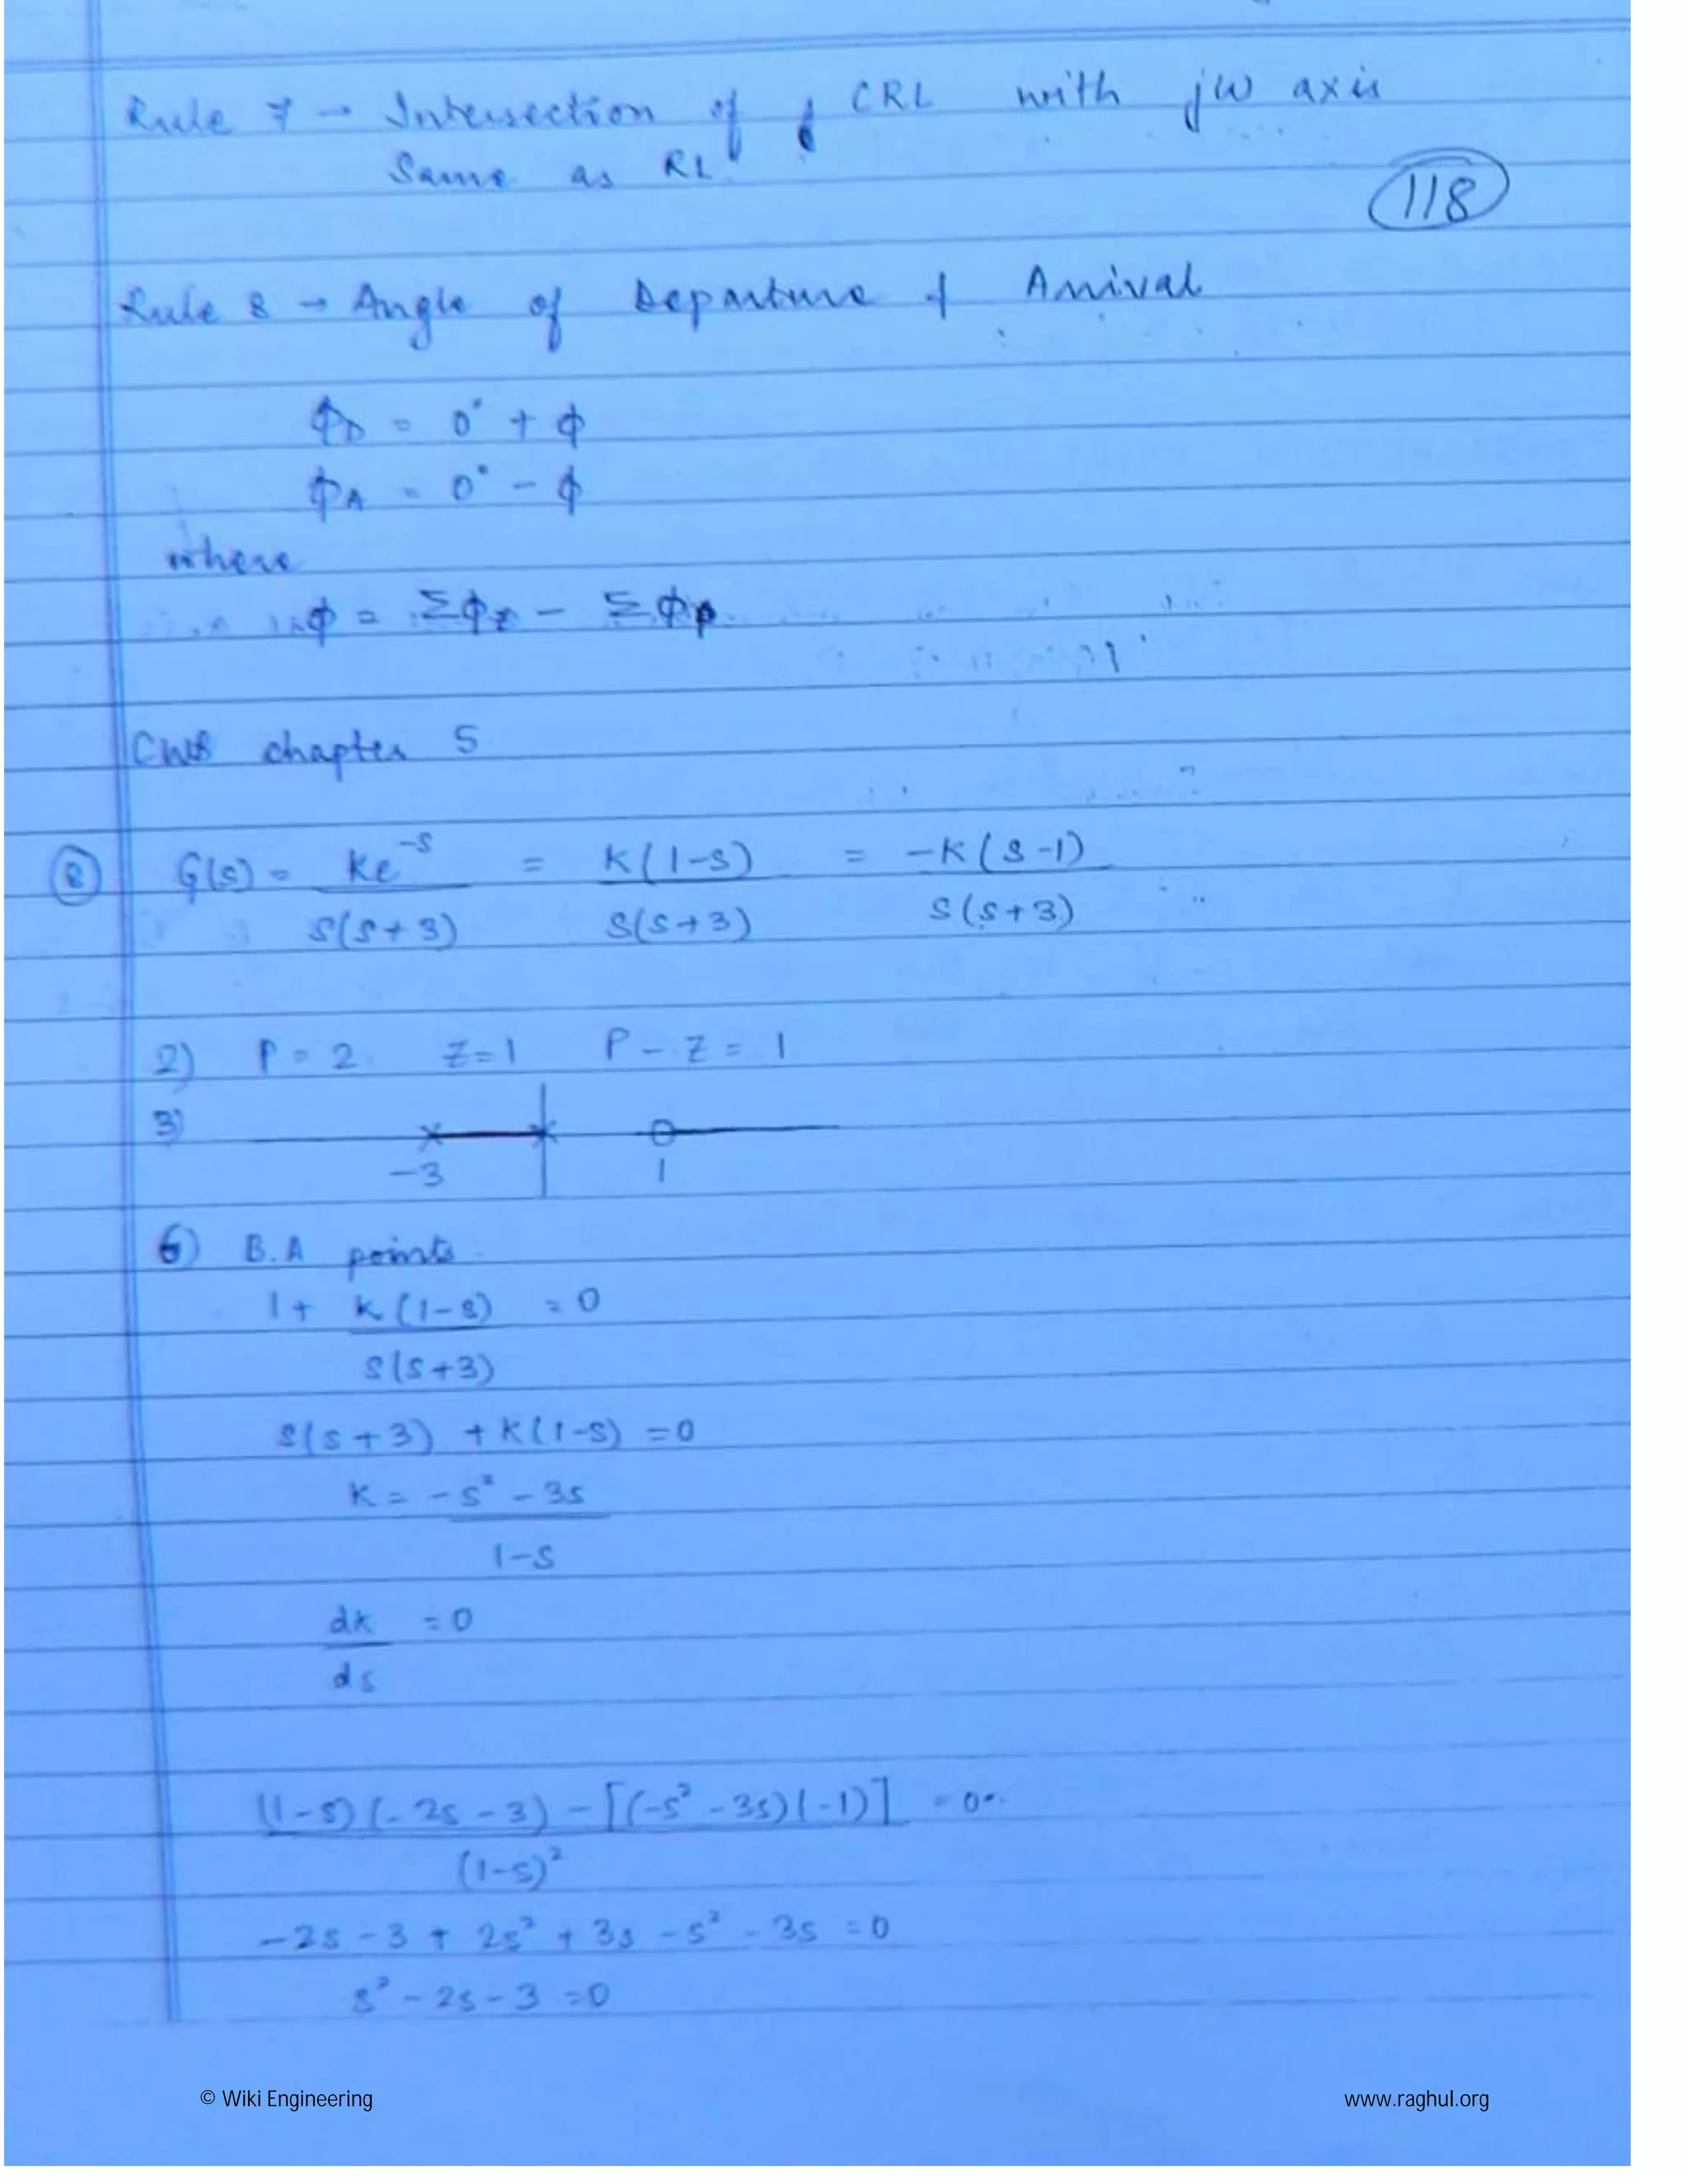 Rule 7 → Intersection of CRL with jω axis
Same as RL
118
Rule 8 → Angle of Departure & Arrival
ΦD = 0° + Φ
ΦA = 0° - Φ
where
Φ = ΣΦz - ΣΦp
CWB chapter 5
8 G(s) = Ke^-s / s(s+3) = K(1-s) / s(s+3) = -K(s-1) / s(s+3)
2) P = 2 Z = 1 P - Z = 1
3)
-3 1
6) B.A points
1 + K(1-s) / s(s+3) = 0
s(s+3) + K(1-s) = 0
K = -s² - 3s / 1-s
dk / ds = 0
(1-s)(-2s-3) - [(-s²-3s)(-1)] / (1-s)² = 0
-2s - 3 + 2s² + 3s - s² - 3s = 0
s² - 2s - 3 = 0
© Wiki Engineering www.raghul.org